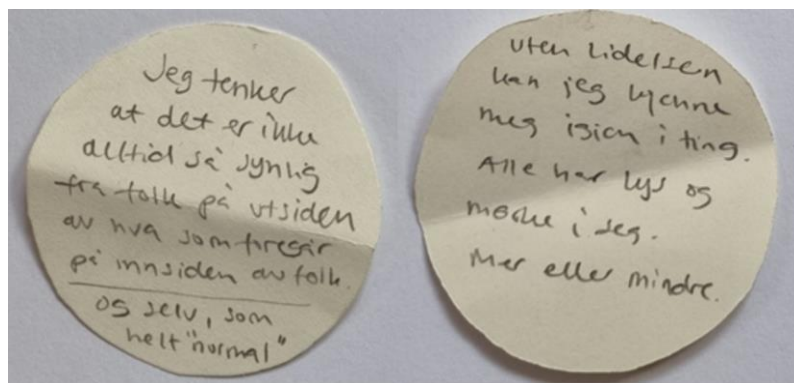 Jeg tenker
at det er ikke
alltid så synlig
fra folk på utsiden
av hva som foregår
på innsiden av folk.
og selv, som
helt "normal"
uten lidelsen
kan jeg kjenne
meg igjen i ting.
Alle har lys og
mørke i seg.
Mer eller mindre.